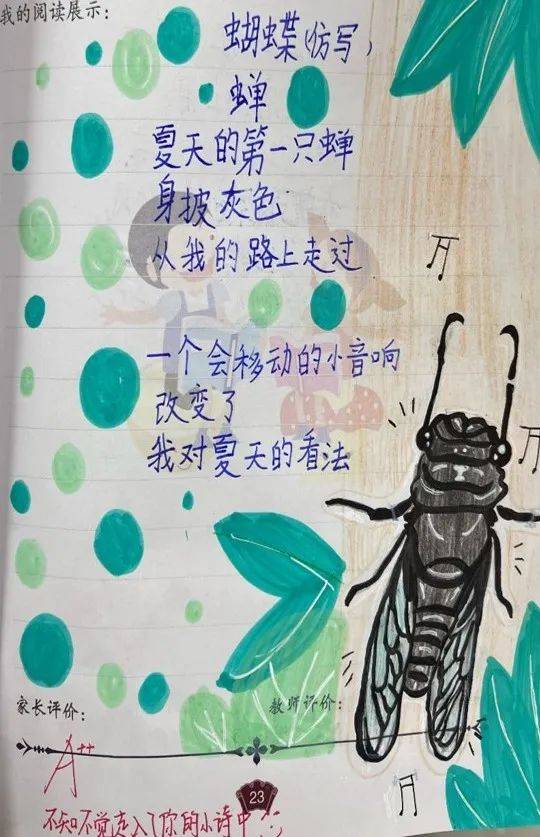 我的阅读展示：
蝴蝶（仿写）
蝉
夏天的第一只蝉
身披灰色
从我的路上走过
一个会移动的小音响
改变了
我对夏天的看法
家长评价：
教师评价：
A++
23
不知不觉走入了你的小诗中